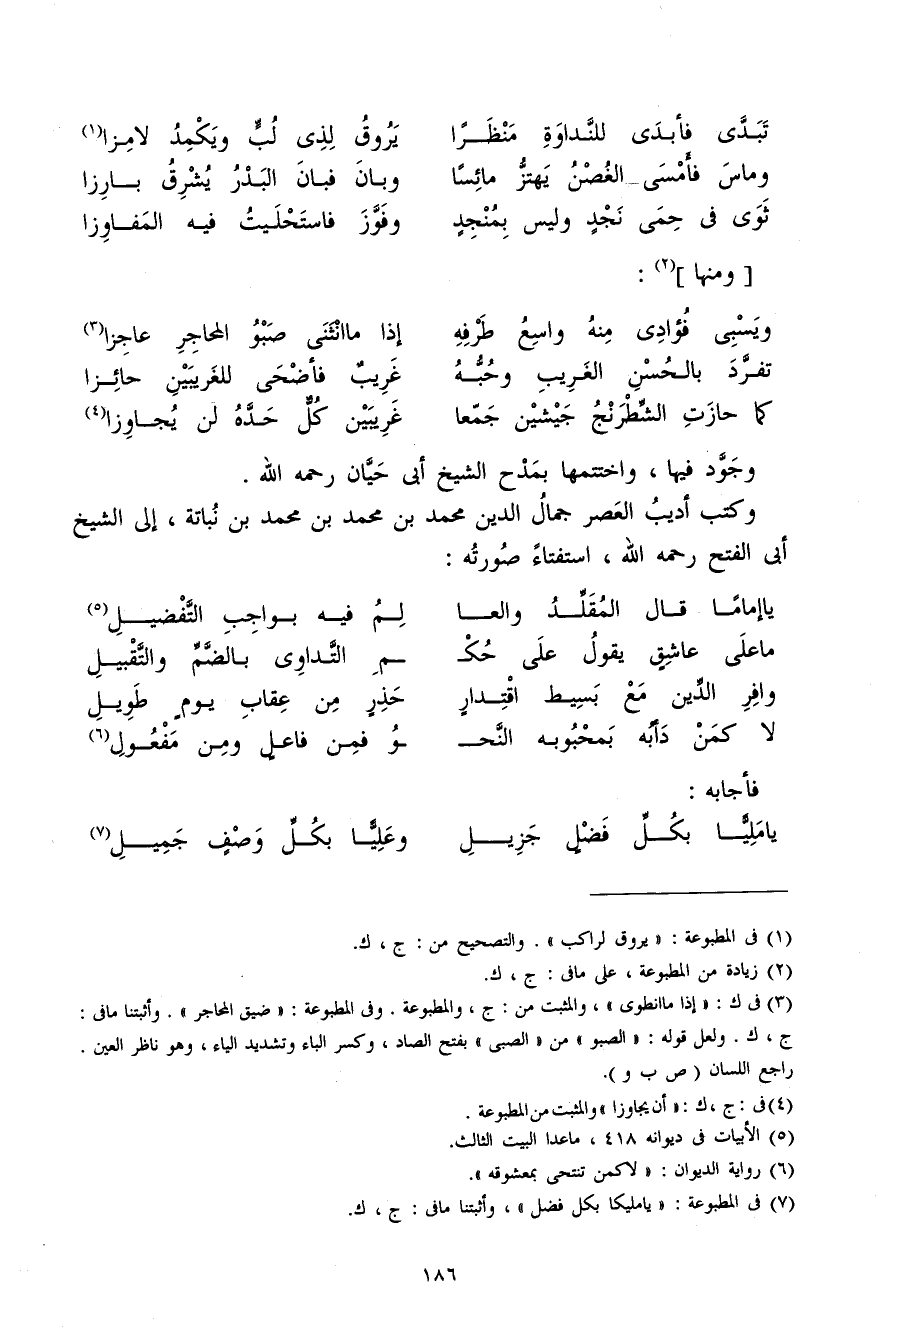 تَبَدَّى فأبدَى للنَّداوَةِ مَنْظَـــرًا يَرُوقُ لِذِى لُبٍّ ويَكْمِدُ لامِـزا(١)
وماسَ فأَمْسَى الغُصْنُ يَهتزُّ مائِسًا وبـانَ فبـانَ البَـدْرُ يُشْرِقُ بـــارِزا
ثَوَى فى حِمَى نَجْدٍ وليس بِمُنْجِدٍ وفَوَّزَ فاستَحْلَـيتُ فيـه المَفـاوِزا
[ ومنها ](٢) :
ويَسْبِى فُؤادِى مِنهُ واسِعُ طَرْفِهِ إذا ماانْثَنَى صَبْوُ المحاجِرِ عاجِزا(٣)
تفـرَّدَ بالـحُسْنِ الغَـرِيبِ وحُبُّـهُ غَرِيبٌ فأَضْحَى للغَرِيبَيْنِ حائِـزا
كما حازَتِ الشِّطْرَنْجُ جَيْشيْن جَمَّعا غَرِيبَيْن كُلٌّ حَـدَّهُ لن يُجـاوِزا(٤)
وجَوَّد فيها ، واختتمها بمَدْح الشيخ أبى حَيَّان رحمه الله .
وكتب أديبُ العَصر جمالُ الدين محمد بن محمد بن محمد بن نُباتة ، إلى الشيخ
أبى الفتح رحمه الله ، استفتاءً صُورتُه :
ياإمامًـا قـال المُقَلِّـدُ والعـا لِـمُ فيـه بـواجِبِ التَّفْضيـــلِ(٥)
ماعلَى عاشِقٍ يقولُ علَى حُكْـ ـمِ التَّداوِى بـالضَّمِّ والتَّقْبيـلِ
وافِرِ الدِّين مَعْ بَسِيط اقْتِـدارٍ حَذِرٍ مِن عِقابِ يـومٍ طَوِيـلِ
لا كمَنْ دَأبُه بمَحْبُوبـه النَّحـ ـوُ فمِـن فاعـلٍ ومِـن مَفْعُـولِ(٦)
فأجابه :
يامَلِيًّــا بكُــلِّ فَضْلٍ جَزِيــلِ وعَلِيًّـا بكُـلِّ وَصْفٍ جَميــلِ(٧)
(١) فى المطبوعة : « يروق لراكب » . والتصحيح من : ج ، ك.
(٢) زيادة من المطبوعة ، على مافى : ج ، ك.
(٣) فى ك : « إذا ماانطوى » ، والمثبت من : ج ، والمطبوعة . وفى المطبوعة : « ضيق المحاجر » . وأثبتنا مافى :
ج ، ك . ولعل قوله : « الصبو » من « الصبى » بفتح الصاد ، وكسر الباء وتشديد الياء ، وهو ناظر العين .
راجع اللسان ( ص ب و ).
(٤) فى : ج ، ك : « أن يجاوزا » والمثبت من المطبوعة .
(٥) الأبيات فى ديوانه ٤١٨ ، ماعدا البيت الثالث.
(٦) رواية الديوان : « لاكمن تنتحى بمعشوقه ».
(٧) فى المطبوعة : « يامليكا بكل فضل » ، وأثبتنا مافى : ج ، ك.
١٨٦